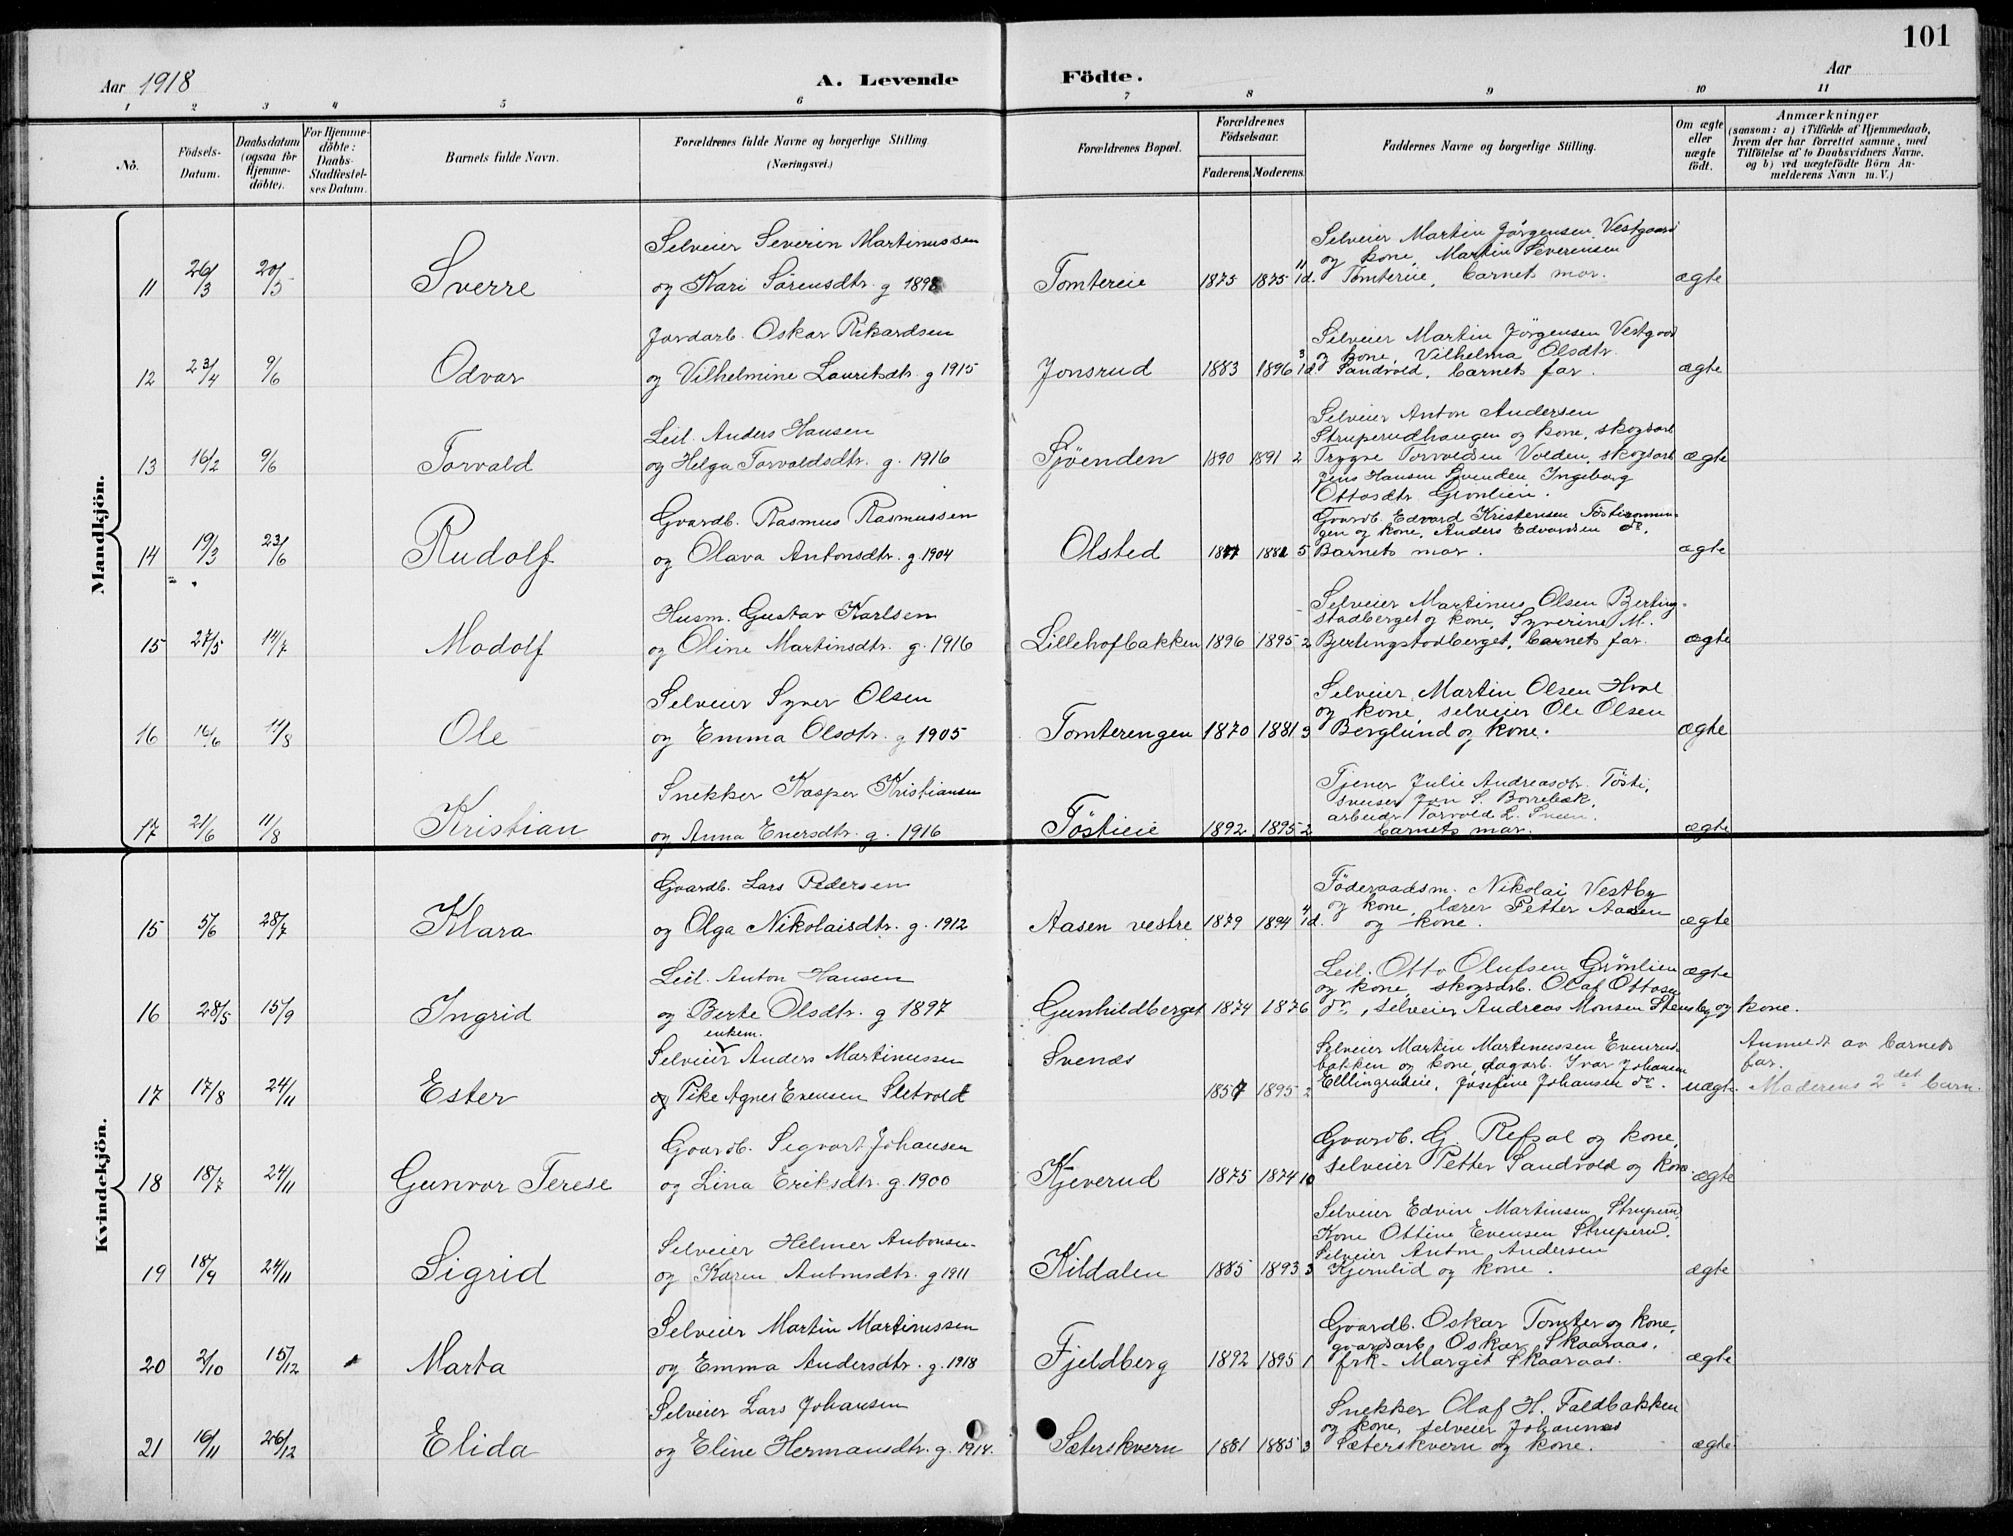 101
Aar 1918
A. Levende Födte.
Aar
1 2 3 4 5 6 7 8 9 10 11
No.
Födsels-Datum.
Daabsdatum (ogsaa for Hjemme-döbte).
For Hjemme-döbte: Daabs-Stadfæstel-ses Datum.
Barnets fulde Navn.
Forældrenes fulde Navne og borgerlige Stilling (Næringsvei.)
Forældrenes Bopæl.
Forældrenes Födselsaar.
Faderens. Moderens.
Faddernes Navne og borgerlige Stilling.
Om ægte eller uægte födt.
Anmærkninger
(saasom: a) i Tilfælde af Hjemmedaab, hvem der har forrettet samme, med Tilföielse af to Daabsvidners Navne, og b) ved uægtefödte Börn An-melderens Navn m. V.)
Mandkjön.
Selveier Severin Martinussen
Selveier Martin Jørgensen Vestgaard
og kone, Martin Severinsen
11 26/3 20/5 Sverre og Kari Sörensdtr. g 1898 Tomtereie 1875 1875 11 1d. Tomtereie, barnets mor. ægte
Jordarb. Oskar Rikardsen
Selveier Martin Jørgensen Vestgaard
og kone, Vilhelma Olsdtr.
12 23/4 9/6 Odvar og Vilhelmine Lauritsdtr. g 1915 Jonsrud 1883 1896 3 1d Sandvold, barnets far. ægte
Leil. Anders Hansen
Selveier Anton Andersen
Struperudhaugen og kone, skogsarb
13 16/2 9/6 Torvald og Helga Torvaldsdtr. g. 1916 Sjöenden 1890 1891 2 Trygve Torvaldsen Volden, skogsarb ægte
Jens Hansen Sjöenden, Ingeborg
Ottosdtr. Grönlien.
Gaardb. Rasmus Rasmussen
Gaardb. Edvard Kristensen
gen og kone, Anders Edvardsen do.
14 19/3 23/6 Rudolf og Olava Antonsdtr. g. 1904 Olsted 5 Barnets mor. ægte
Husm. Gustav Karlsen
Selveier Martinus Olsen Berting-
stadberget og kone, Syverine M.
15 27/5 14/7 Modolf og Oline Martinsdtr. g. 1916 Lillehofbakken 1896 1895 2 Bjertingstadberget, barnets far. ægte
Selveier Syver Olsen
Selveier Martin Olsen Hval
og kone, selveier Ole Olsen
16 16/6 11/8 Ole og Emma Olsdtr. g 1905 Tomterengen 1870 1881 3 Berglund og kone. ægte
Snekker Kasper Kristiansen
Tjener Julie Andreasdtr. Tösti,
sveiser Jon S. Borrebæk,
arbeider Torvold L. Sveen,
17 21/6 11/8 Kristian og Anna Enersdtr. g. 1916 Töstieie 1892 1895 2 barnets mor. ægte
Kvindekjön.
Gaardb. Lars Pedersen
Föderaadsm. Nikolai Vestby
og kone, lærer Petter Aasen
15 5/6 28/7 Klara og Olga Nikolaisdtr. g. 1912 Aasen vestre 1879 1894 4 1d. og kone. ægte
Leil. Anton Hansen
Leil. Otto Olufsen Grönlien ægte
og kone, skogsarb. Olaf Ottosen
16 28/5 15/9 Ingrid og Berte Olsdtr. g 1897 Gunhildberget 1874 1876 do, selveier Andreas Monsen Stensby og kone.
enkem.
Selveier Anders Martinussen Svenæs
Selveier Martin Martinussen Evenrud-
bakken og kone, dagarb. Ivar Johansen
Anmeldt av barnets
far.
17 17/8 24/11 Ester og Pike Agnes Evensen Sletvold 1857 1895 2 Ellingrudeie, Josefine Johansen do. uægte. Moderens 2det barn.
Gaardb. Sigvart Johansen
Gaardb. G. Refsal og kone,
18 18/7 24/11 Gunvor Terese og Lina Eriksdtr. g. 1900 Kjeverud 1875 1874 10 selveier Petter Sandvold og kone. ægte
Selveier Helmer Antonsen
Selveier Edvin Martinsen Struperud,
Kone Ottine Evensen Struperud.
Selveier Anton Andersen
19 18/9 24/11 Sigrid og Karen Antonsdtr. g 1911 Kildalen 1885 1893 3 Kjernlid og kone. ægte
Selveier Martin Martinussen
Gaardb. Oskar Tomter og kone,
gaardsarb. Oskar Skaaraas,
20 2/10 15/12 Marta og Emma Andersdtr. g. 1918 Fjeldberg 1892 1895 1 frk. Margit Skaaraas. ægte
Selveier Lars Johansen
Snekker Olaf H. Faldbakken
og kone, selveier Johannes
21 16/11 26/12 Elida og Eline Hermansdtr. g. 1914. Sæterskvern 1881 1885 3 Sæterskvern og kone. ægte